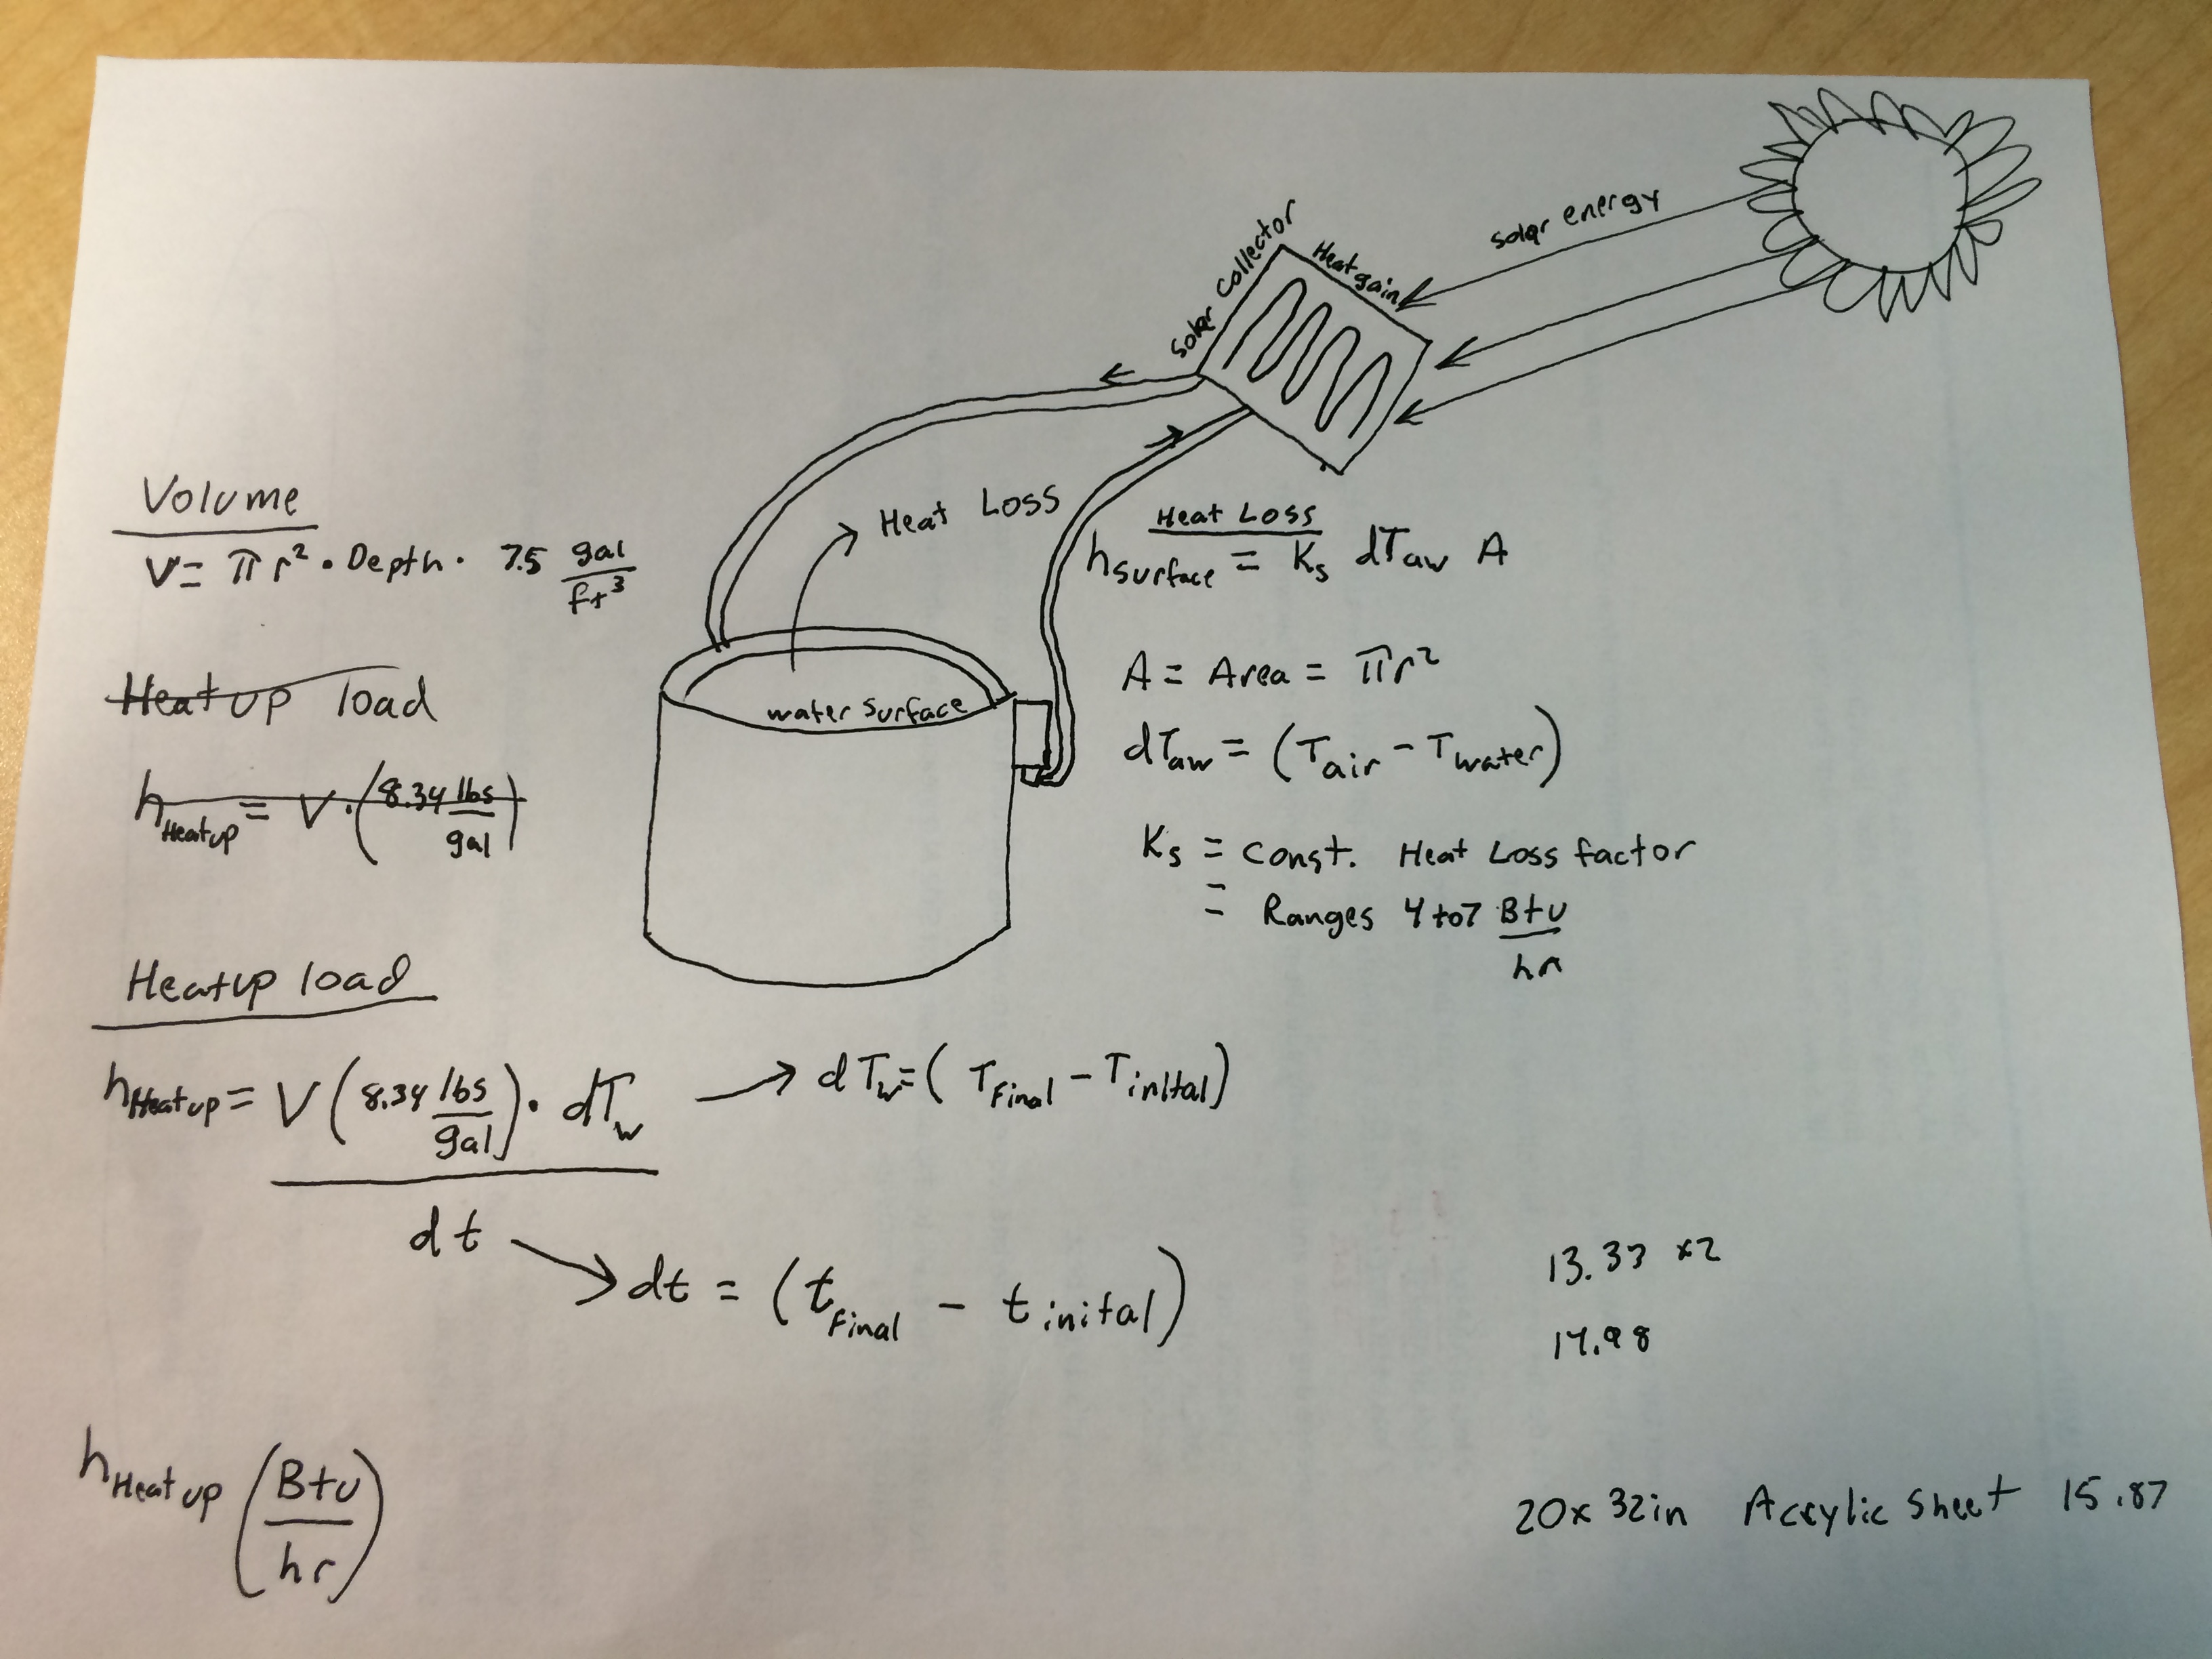 solar energy
Solar Collector
Heat gain
Volume
V = πr² · Depth · 7.5 gal/ft³
Heat Loss
Heat Loss
h surface = Ks dTaw A
Heat up load
h Heatup = V · (8.34 lbs/gal)
water surface
A = Area = πr²
dTaw = (Tair - Twater)
Ks = Const. Heat Loss factor
= Ranges 4 to 7 Btu/hr
Heatup load
h Heatup = V (8.34 lbs/gal) · dTw / dt
dTw = (TFinal - Tinital)
dt = (tFinal - tinital)
13.33 x2
14.98
h Heat up (Btu/hr)
20x 32in Acrylic Sheet 15.87